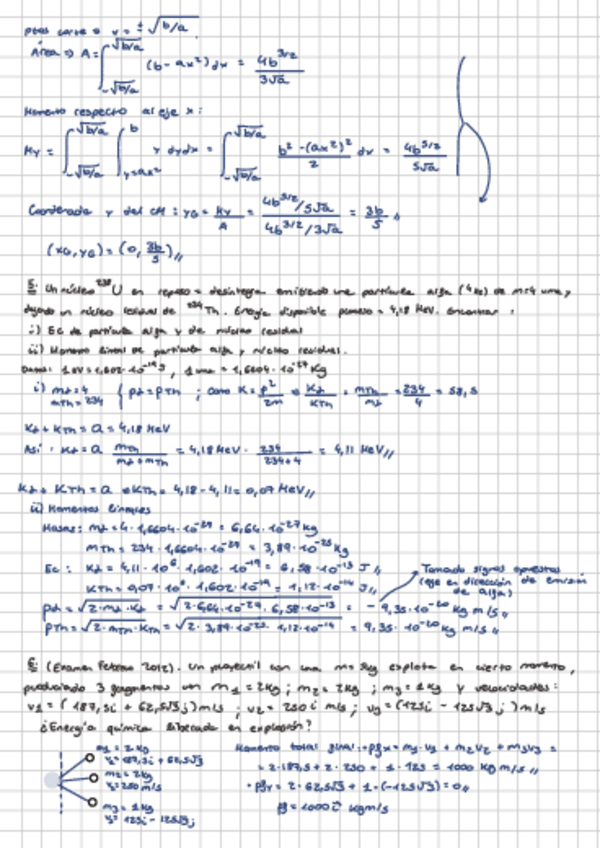 para corte x = ± √b/a.
Área ⇒ A = ∫_{-√b/a}^{√b/a} (b - ax²) dx = 4b^{3/2} / 3√a
Momento respecto al eje x:
My = ∫_{-√b/a}^{√b/a} ∫_{y=ax²}^{b} y dydx = ∫_{-√b/a}^{√b/a} b² - (ax²)² / 2 dx = 4b^{5/2} / 5√a
Coordenada y del CM : yG = My / A = 4b^{5/2}/5√a / 4b^{3/2}/3√a = 3b / 5 //
(xG, yG) = (0, 3b/5) //
5. Un núcleo ²³⁸U en reposo se desintegra emitiendo una partícula alfa (⁴He) de m=4 uma, y
dejando un núcleo residual de ²³⁴Th. Energía disponible proceso = 4,18 MeV. Encontrar :
i) Ec de partícula alfa y de núcleo residual
ii) Momento lineal de partícula alfa y núcleo residual.
Datos: 1 eV = 1,602·10⁻¹⁹ J, 1 uma = 1,6604·10⁻²⁷ Kg
i) mα = 4
mTh = 234 { pα = pTh ; como K = p²/2m ⇒ Kα/KTh = mTh/mα = 234/4 = 58,5
Kα + KTh = Q = 4,18 MeV
Así : Kα = Q mTh / mα + mTh = 4,18 MeV · 234 / 234+4 = 4,11 MeV //
Kα + KTh = Q ⇒ KTh = 4,18 - 4,11 = 0,07 MeV //
ii) Momentos lineales
Masas: mα = 4 · 1,6604·10⁻²⁷ = 6,64·10⁻²⁷ kg
mTh = 234 · 1,6604·10⁻²⁷ = 3,89·10⁻²⁵ kg
Ec : Kα = 4,11·10⁶ · 1,602·10⁻¹⁹ = 6,58·10⁻¹³ J //
KTh = 0,07·10⁶ · 1,602·10⁻¹⁹ = 1,12·10⁻¹⁴ J //
Tomando signos opuestos
(eje en dirección de emisión
de alfa)
pα = √2·mα·Kα = √2·6,64·10⁻²⁷ · 6,58·10⁻¹³ = - 9,35·10⁻²⁰ Kg m/s //
pTh = √2·mTh·KTh = √2·3,89·10⁻²⁵ · 1,12·10⁻¹⁴ = 9,35·10⁻²⁰ Kg m/s //
6. (Examen Febrero 2012). Un proyectil con una m = 5kg explota en cierto momento,
produciendo 3 fragmentos m₁ = 2kg ; m₂ = 2kg ; m₃ = 1kg y velocidades :
v₁ = (187,5i + 62,5√3j) m/s ; v₂ = 250 i m/s ; v₃ = (125i - 125√3j) m/s
¿Energía química liberada en explosión?
m₁ = 2 kg
v₁ = 187,5i + 62,5√3
m₂ = 2kg
v₂ = 250 m/s
m₃ = 1kg
v₃ = 125i - 125√3j
Momento total final · pfx = m₁·v₁ + m₂v₂ + m₃v₃ =
= 2·187,5 + 2·250 + 1·125 = 1000 kg m/s //
· pfy = 2·62,5√3 + 1·(-125√3) = 0 //
pf = 1000 i kgm/s